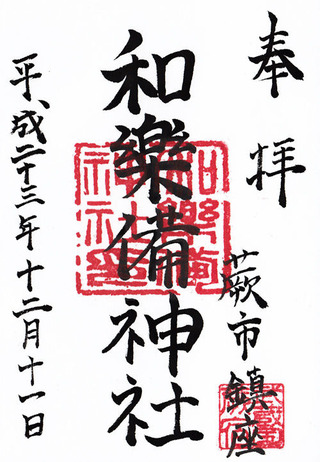 奉拝
蕨市鎮座
和樂備神社
平成二十三年十二月十一日